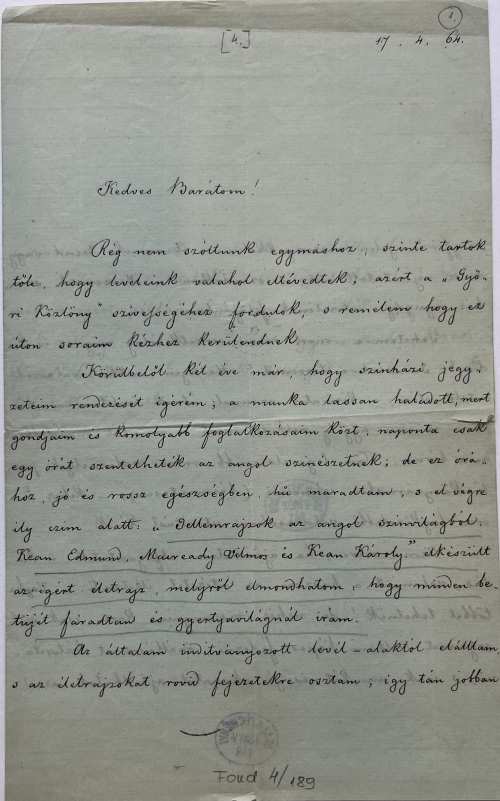 1.
[4.]
17. 4. 64.
Kedves Barátom!
Rég nem szóltunk egymáshoz, szinte tartok
tőle, hogy leveleink valahol eltévedtek; azért a „Győ-
ri Közlöny" szivességéhez fordulok, s remélem hogy ez
úton soraim kézhez kerülendnek.
Körülbelől két éve már, hogy szinházi jegy-
zeteim rendezését igérém; a munka lassan haladott, mert
gondjaim és komolyabb foglalkozásaim közt, naponta csak
egy órát szentelheték az angol szinészetnek; de ez órá-
hoz, jó és rossz egészségben, hű maradtam, s el végre
ily czim alatt: „Jellemrajzok az angol szinvilágból,
Kean Edmund, Macready Vilmos és Kean Károly" elkészült
az igért életrajz, melyről elmondhatom, hogy minden be-
tüjét fáradtan és gyertyavilágnál irám.
Az általam inditványozott levél-alaktól elálltam,
s az életrajzokat rövid fejezetekre osztám; igy tán jobban
Fond 4/189